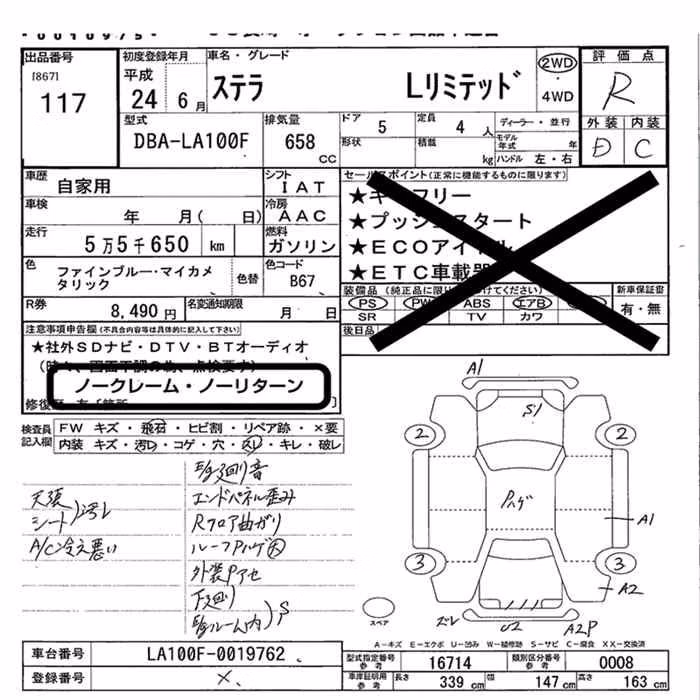 出品番号
[867]
117
初度登録年月
平成
24 6 月
車名・グレード
ステラ Lリミテッド
2WD
・
4WD
評価点
R
外装 内装
D C
型式
DBA-LA100F
排気量
658
CC
ドア
5
定員
4 人
形状
積載
kg
ディーラー・並行
モデル
年式 年
ハンドル 左・右
車歴
自家用
シフト
IAT
車検
年 月( 日)
冷房
AAC
走行
5万5千650 km
燃料
ガソリン
色
ファインブルー・マイカメ
タリック
色替
色コード
B67
R券
8,490 円
名変通知期限
月 日
セールスポイント(正常に機能するものに限ります)
★キーフリー
★プッシュスタート
★ECOアイドル
★ETC車載器
装備品(純正品に限り○を付けてください)
PS PW ABS エアB
SR TV カワ
新車保証書
有・無
後日品
注意事項申告欄(不具合内容等は具体的に記入して下さい)
★社外SDナビ・DTV・BTオーディオ
(時々、画面不調の為、点検要す)
ノークレーム・ノーリターン
修復歴
検査員
記入欄
FW キズ・飛石・ヒビ割・リペア跡・×要
内装 キズ・汚レ・コゲ・穴・スレ・キレ・破レ
天張
シート)汚レ
A/C冷え悪い
E/g廻り音
エンドパネル歪み
Rフロア曲がり
ルーフPハゲ大
外装Pアセ
下廻り
E/gルーム内)S
A1
S1
2
2
Pハゲ
A1
3
3
A2
スペア
ズレ
U2
A2P
A-キズ E-エクボ U-凹み W-補修跡 S-サビ C-腐食 XX-交換済
車台番号
LA100F-0019762
登録番号
×
型式指定番号
参考
16714
類別区分番号
参考
0008
車庫証明用
参考
長さ 339 cm
幅 147 cm
高さ 163 cm